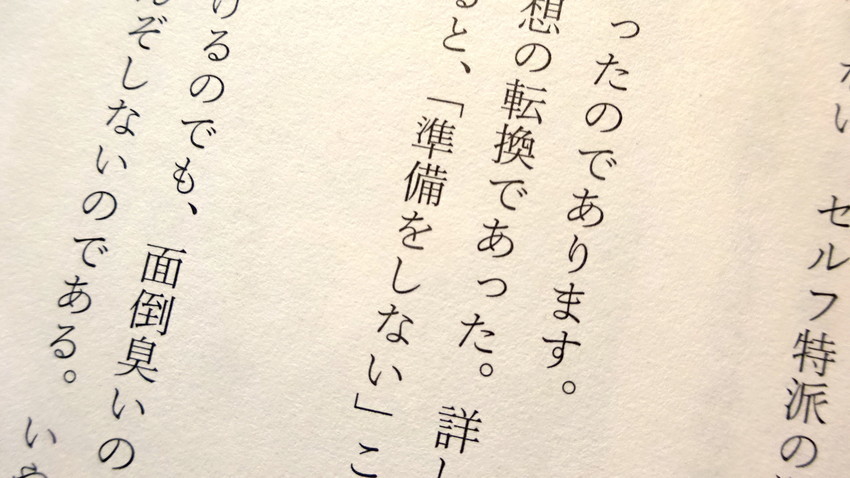 ない　セルフ特派の
ったのであります。
想の転換であった。詳し
ると、「準備をしない」こ
けるのでも、面倒臭いの
んぞしないのである。
いや